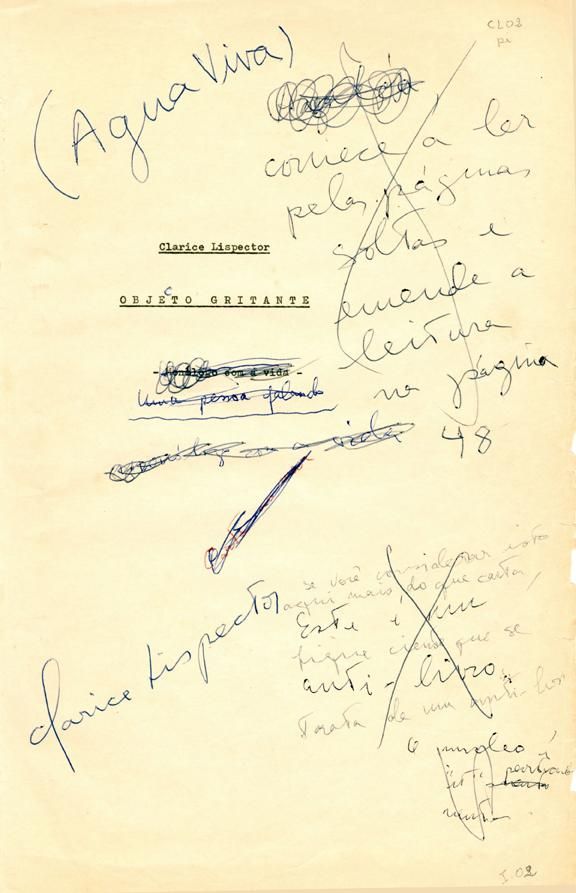 CL02
pi
(Agua Viva)
comece a ler
pelas páginas
soltas e
emende a
leitura
na página
48
Clarice Lispector
OBJETO GRITANTE
c
- Monólogo com a vida -
Uma pessoa falando
com a vida
Clarice Lispector
se você considerar isto
aqui mais do que carta,
Este é um
fique ciente que se
anti-livro.
Trata de um anti-livro
O
é
I.02